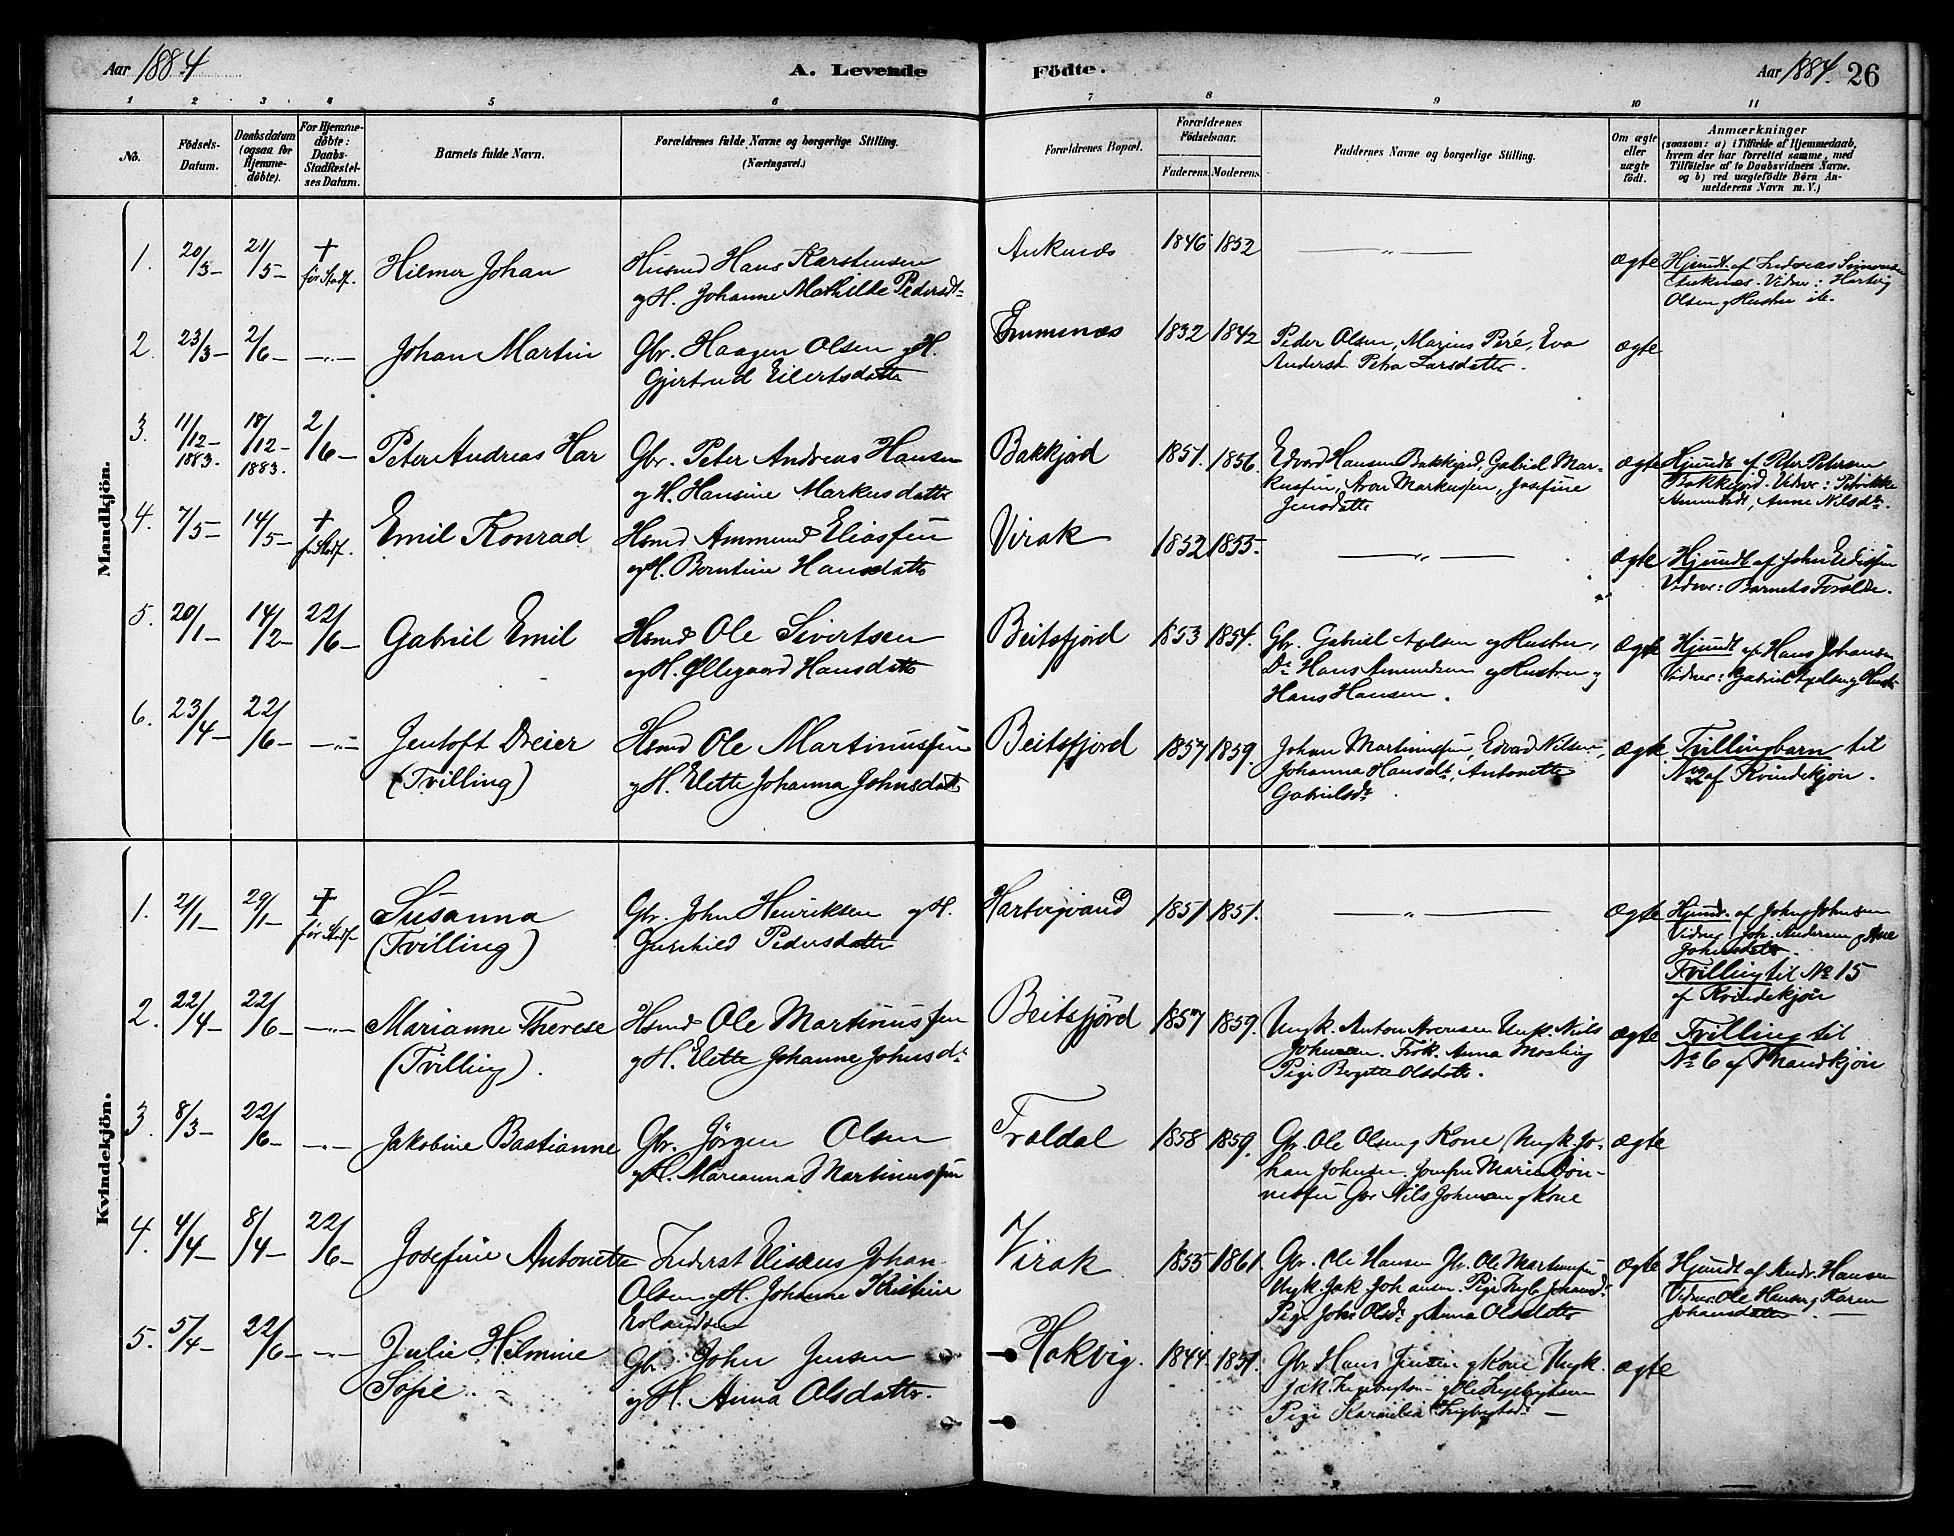 Aar 1884
A. Levende
Födte.
Aar 1884. 26
1 2 3 4 5 6 7 8 9 10 11
No.
Födsels-
Datum.
Daabsdatum
(ogsaa for
Hjemme-
døbte).
For Hjemme-
døbte:
Daabs-
Stadfæstel-
ses Datum.
Barnets fulde Navn.
Forældrenes fulde Navne og borgerlige Stilling.
(Næringsvei.)
Forældrenes Bopæl.
Forældrenes
Födselsaar.
Faderens. Moderens.
Faddernes Navne og borgerlige Stilling.
Om ægte
eller
uægte
födt.
Anmærkninger
(saasom: a) i Tilfælde af Hjemmedaab,
hvem der har forrettet samme, med
Tilföielse af to Daabsvidners Navne.
og b) ved uægtefödte Børn An-
melderens Navn m. V.)
Mandkjön.
1. 20/3- 21/5- † før Stadf. Hilmer Johan
Husmd Hans Karstensen
og H. Johanne Mathilde Pedersdt
Ankenæs 1846 1852 — „ — ægte
Hjemdt. af Andreas Simonsen
Ankenæs. Vidner: Hartvig
Olsen og Hustru
2. 23/3- 2/6- —„— Johan Martin
Gbr. Haagen Olsen og H.
Gjertrud Eilertsdatter
Emmenæs 1832 1842
Peder Olsen, Marius Peré, Eva
Andersd. Petra Larsdatter.
ægte
3. 11/12- 1883. 18/12- 1883. 2/6- Peter Andreas Har
Gbr. Peter Andreas Hansen
og H. Hansine Markusdatter
Bakkjord 1851. 1856.
Edvard Hansen Bakkjord, Gabriel Mar-
kussen, Aron Markussen, Josefine
Jensdatter
ægte
Hjemdt af Peter Petersen
Bakkejord. Vidner: Petrikke
Ammundsdt, Anne Nilsdt.
4. 7/5- 14/5- † før Stadf. Emil Konrad
Hsmd Ammund Eliassen
og H. Berntine Hansdatter
Virak 1852 1855. — „ — ægte
Hjemdt af John
Vidner: Barnets Forældre.
5. 20/1- 14/2- 22/6- Gabriel Emil
Hsmd Ole Sivertsen
og H. Øllegaard Hansdatter
Beitsfjord 1853 1854.
Gbr. Gabriel Axelsen og Hustru,
Do Hans Amundsen og Hustru og
Hans Hansen.
ægte
Hjemdt af Hans Johansen
Vidner: Gabriel Axelsen og Hustr
6. 23/4- 22/6- —„— Jentoft Dreier
(Tvilling)
Hsmd Ole Martinussen
og H. Elette Johanna Johnsdatter
Beitsfjord 1857 1859.
Johan Martinussen, Edvard Nilsen,
Johanna Hansdt, Antonette
Gabrielsdt
ægte
Tvillingbarn til
No 2 af Kvindekjön.
Kvindekjön.
1. 2/1- 29/1- † før Stadf. Susanna
(Tvilling)
Gbr. John Henriksen og H.
Gunhild Pedersdatter
Hartvigvand 1851 1851. — „ — ægte
Hjemd. af John Johnsen
Vidner: Joh. Andersen og Ane
Johnsdatter.
Tvilling til No 15
af Kvindekjön
2. 22/4- 22/6- —„— Marianne Therese
(Tvilling).
Hsmd Ole Martinussen
og H. Elette Johanne Johnsdt
Beitsfjord 1857 1859.
Ungk. Anton Arensen Ungk. Nils
Johnsen. Frök. Anna Mosling
Pige Bergitte Olsdatter.
ægte
Tvilling til
No 6 af Mandkjön
3. 8/3- 22/6- —„— Jakobine Bastianne
Gbr. Jörgen Olsen
og H. Marianna Martinussen
Traldal 1858 1859.
Gbr. Ole Olsen og Kone, Ungk. Jo-
han Johnsen, Jomfru Marie Dön-
nessen Gbr Nils Johnsen og Kone
ægte
4. 4/4- 8/4- 22/6- Josefine Antonette
Inderst Elisæus Johan
Olsen og H. Johanne Kristine
Erlandsen
Virak 1855 1861.
Gbr. Ole Hansen Gbr. Ole Martinusen
Ungk. Jak. Johansen. Pige Johansd.
Pige Joh. Olsdt og Anna Olsdatter
ægte
Hjemdt af Andr. Hansen
Vidner: Ole Hansen og Karen
Johansdatter.
5. 5/4- 22/6- —„— Julie Hilmine
Sofie
Gbr. John Jensen
og H. Anna Olsdatter.
Hakvig. 1844. 1851.
Gbr Hans Jensen og Kone Ungk.
Jak. Ingebrigtsen og Ole Ingebrigtsen
Pige Karnelia Ingebrigtsd.
ægte